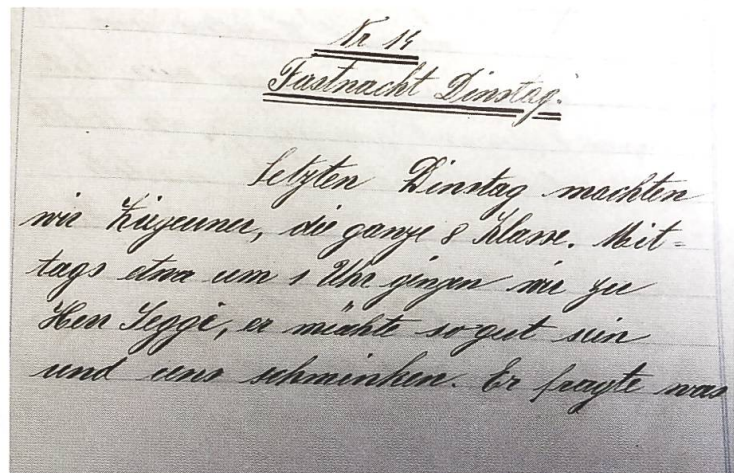 Nr 14
Fastnacht Dinstag.
Letzten Dinstag machten
wir Ziegeuner, die ganze 8 Klasse. Mit-
tags etwa um 1 Uhr gingen wir zu
Herr Jeggé, er möchte so gut sein
und uns schminken. Er fragte was